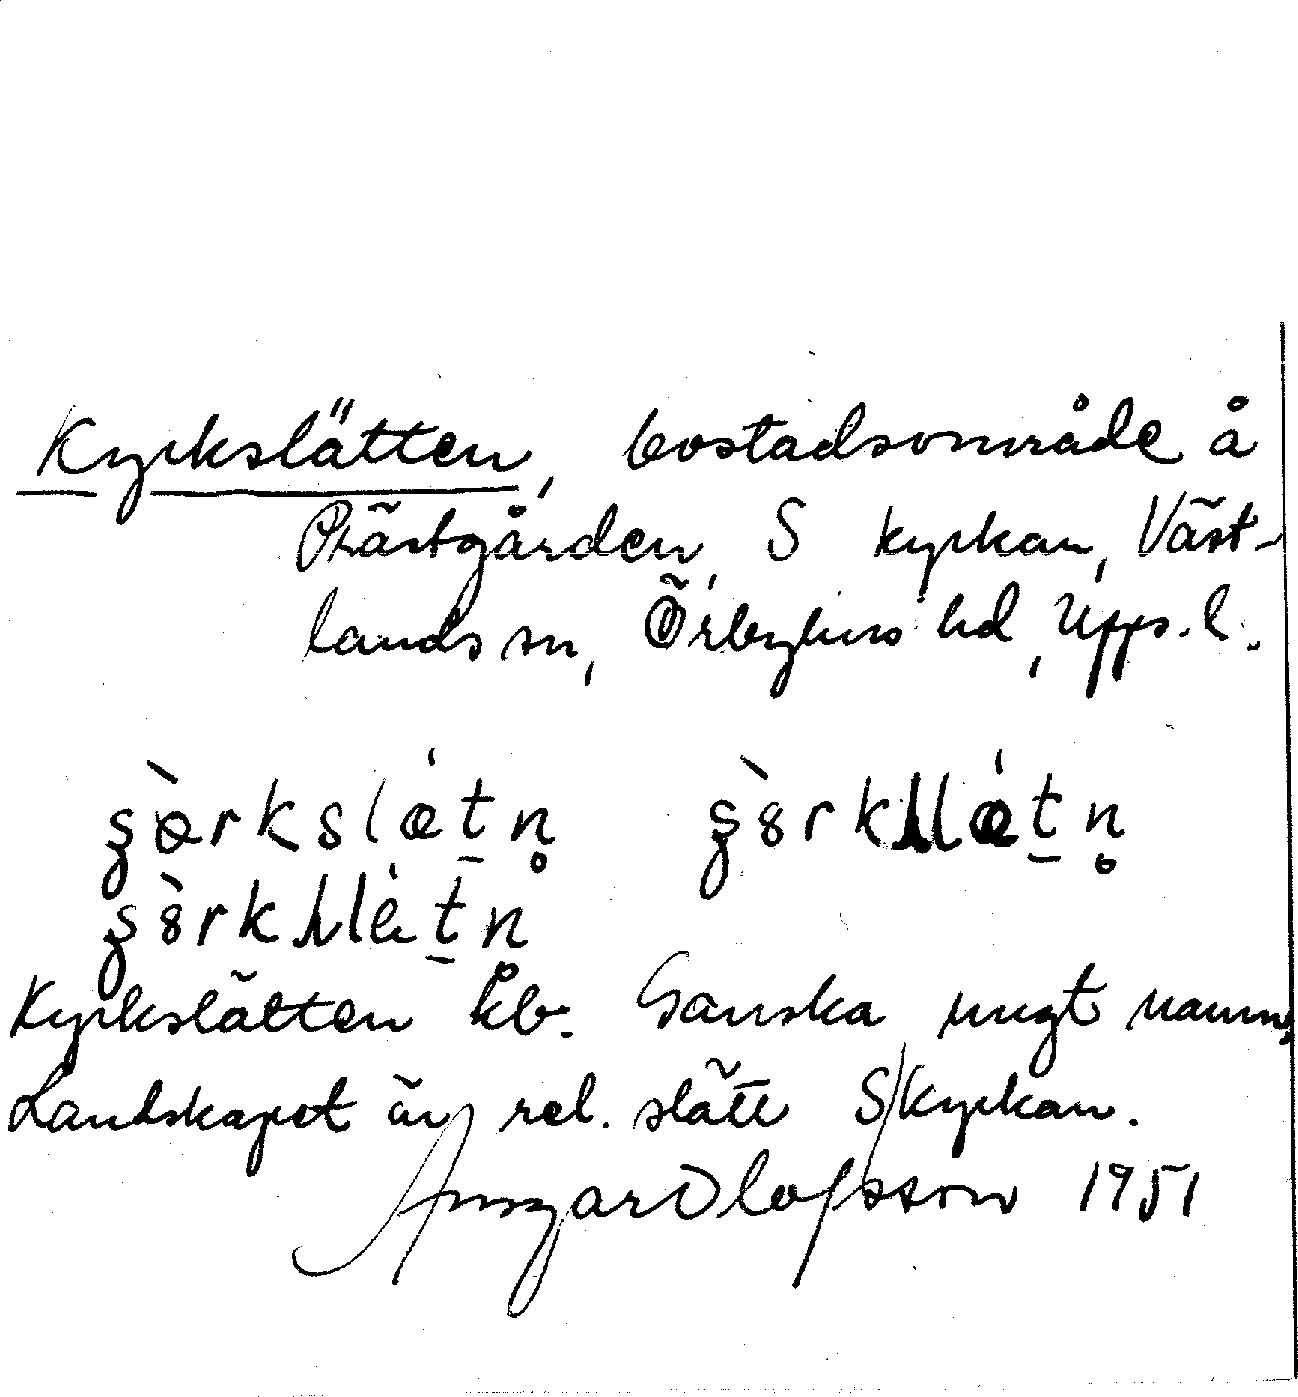 Kyrkslätten, bostadsområde å
Prästgården, S kyrkan, Väst-
lands sn, Örbyhus hd, Upps. l.
Kyrkslätten kb. Ganska ungt namn.
Landskapet är rel. slätt S kyrkan.
Ansgar Olofsson 1951